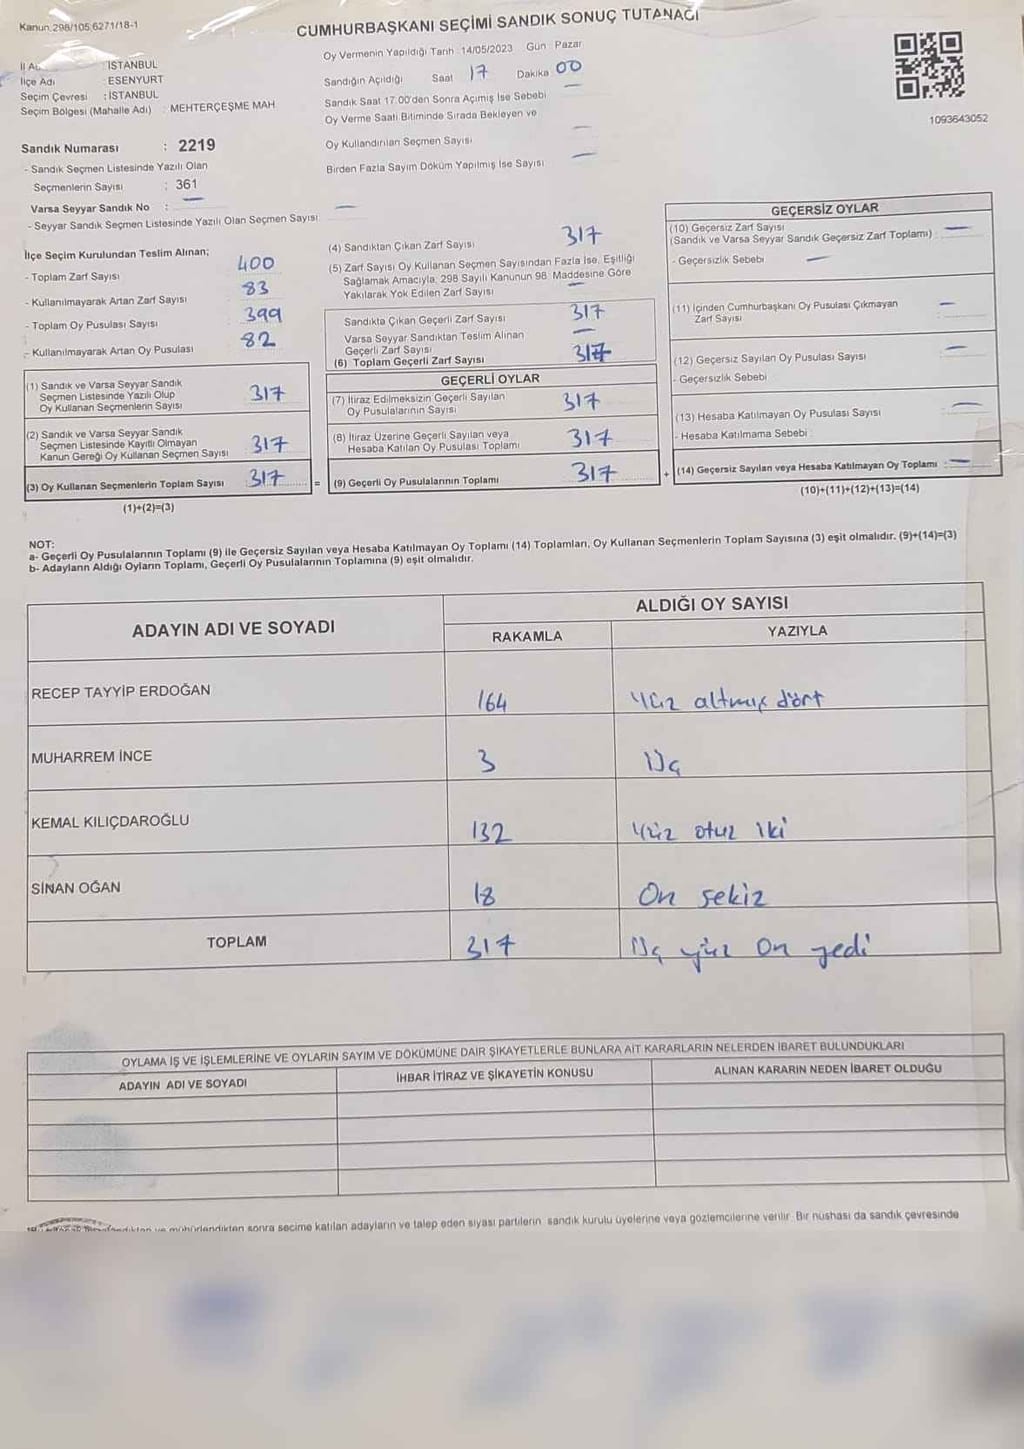 Kanun:298/105,6271/18-1
CUMHURBAŞKANI SEÇİMİ SANDIK SONUÇ TUTANAĞI
İl Adı : İSTANBUL
İlçe Adı : ESENYURT
Seçim Çevresi : İSTANBUL
Seçim Bölgesi (Mahalle Adı) : MEHTERÇEŞME MAH
Sandık Numarası : 2219
- Sandık Seçmen Listesinde Yazılı Olan
Seçmenlerin Sayısı : 361
Varsa Seyyar Sandık No : —
- Seyyar Sandık Seçmen Listesinde Yazılı Olan Seçmen Sayısı: —
Oy Vermenin Yapıldığı Tarih : 14/05/2023 Gün : Pazar
Sandığın Açıldığı Saat 17 Dakika 00
Sandık Saat 17.00'den Sonra Açımış İse Sebebi —
Oy Verme Saati Bitiminde Sırada Bekleyen ve
Oy Kullandırılan Seçmen Sayısı —
Birden Fazla Sayım Döküm Yapılmış İse Sayısı: —
1093643052
İlçe Seçim Kurulundan Teslim Alınan;
- Toplam Zarf Sayısı 400
- Kullanılmayarak Artan Zarf Sayısı 83
- Toplam Oy Pusulası Sayısı 399
- Kullanılmayarak Artan Oy Pusulası 82
(1) Sandık ve Varsa Seyyar Sandık
Seçmen Listesinde Yazılı Olup
Oy Kullanan Seçmenlerin Sayısı 317
(2) Sandık ve Varsa Seyyar Sandık
Seçmen Listesinde Kayıtlı Olmayan
Kanun Gereği Oy Kullanan Seçmen Sayısı 317
(3) Oy Kullanan Seçmenlerin Toplam Sayısı 317 =
(1)+(2)=(3)
(4) Sandıktan Çıkan Zarf Sayısı 317
(5) Zarf Sayısı Oy Kullanan Seçmen Sayısından Fazla İse, Eşitliği
Sağlamak Amacıyla, 298 Sayılı Kanunun 98. Maddesine Göre
Yakılarak Yok Edilen Zarf Sayısı —
Sandıkta Çıkan Geçerli Zarf Sayısı 317
Varsa Seyyar Sandıktan Teslim Alınan
Geçerli Zarf Sayısı —
(6) Toplam Geçerli Zarf Sayısı 317
GEÇERLİ OYLAR
(7) İtiraz Edilmeksizin Geçerli Sayılan
Oy Pusulalarının Sayısı 317
(8) İtiraz Üzerine Geçerli Sayılan veya
Hesaba Katılan Oy Pusulası Toplamı 317
(9) Geçerli Oy Pusulalarının Toplamı 317 +
GEÇERSİZ OYLAR
(10) Geçersiz Zarf Sayısı
(Sandık ve Varsa Seyyar Sandık Geçersiz Zarf Toplamı) : —
- Geçersizlik Sebebi —
(11) İçinden Cumhurbaşkanı Oy Pusulası Çıkmayan
Zarf Sayısı —
(12) Geçersiz Sayılan Oy Pusulası Sayısı —
- Geçersizlik Sebebi
(13) Hesaba Katılmayan Oy Pusulası Sayısı —
- Hesaba Katılmama Sebebi :
(14) Geçersiz Sayılan veya Hesaba Katılmayan Oy Toplamı : —
(10)+(11)+(12)+(13)=(14)
NOT:
a- Geçerli Oy Pusulalarının Toplamı (9) ile Geçersiz Sayılan veya Hesaba Katılmayan Oy Toplamı (14) Toplamları, Oy Kullanan Seçmenlerin Toplam Sayısına (3) eşit olmalıdır. (9)+(14)=(3)
b- Adayların Aldığı Oyların Toplamı, Geçerli Oy Pusulalarının Toplamına (9) eşit olmalıdır.
ADAYIN ADI VE SOYADI
ALDIĞI OY SAYISI
RAKAMLA YAZIYLA
RECEP TAYYİP ERDOĞAN 164 Yüz altmış dört
MUHARREM İNCE 3 Üç
KEMAL KILIÇDAROĞLU 132 Yüz otuz iki
SİNAN OĞAN 18 On sekiz
TOPLAM 317 Üç yüz On yedi
OYLAMA İŞ VE İŞLEMLERİNE VE OYLARIN SAYIM VE DÖKÜMÜNE DAİR ŞİKAYETLERLE BUNLARA AİT KARARLARIN NELERDEN İBARET BULUNDUKLARI
ADAYIN ADI VE SOYADI İHBAR İTİRAZ VE ŞİKAYETİN KONUSU ALINAN KARARIN NEDEN İBARET OLDUĞU
mühürlendikten sonra seçime katılan adayların ve talep eden siyasi partilerin sandık kurulu üyelerine veya gözlemcilerine verilir. Bir nüshası da sandık çevresinde